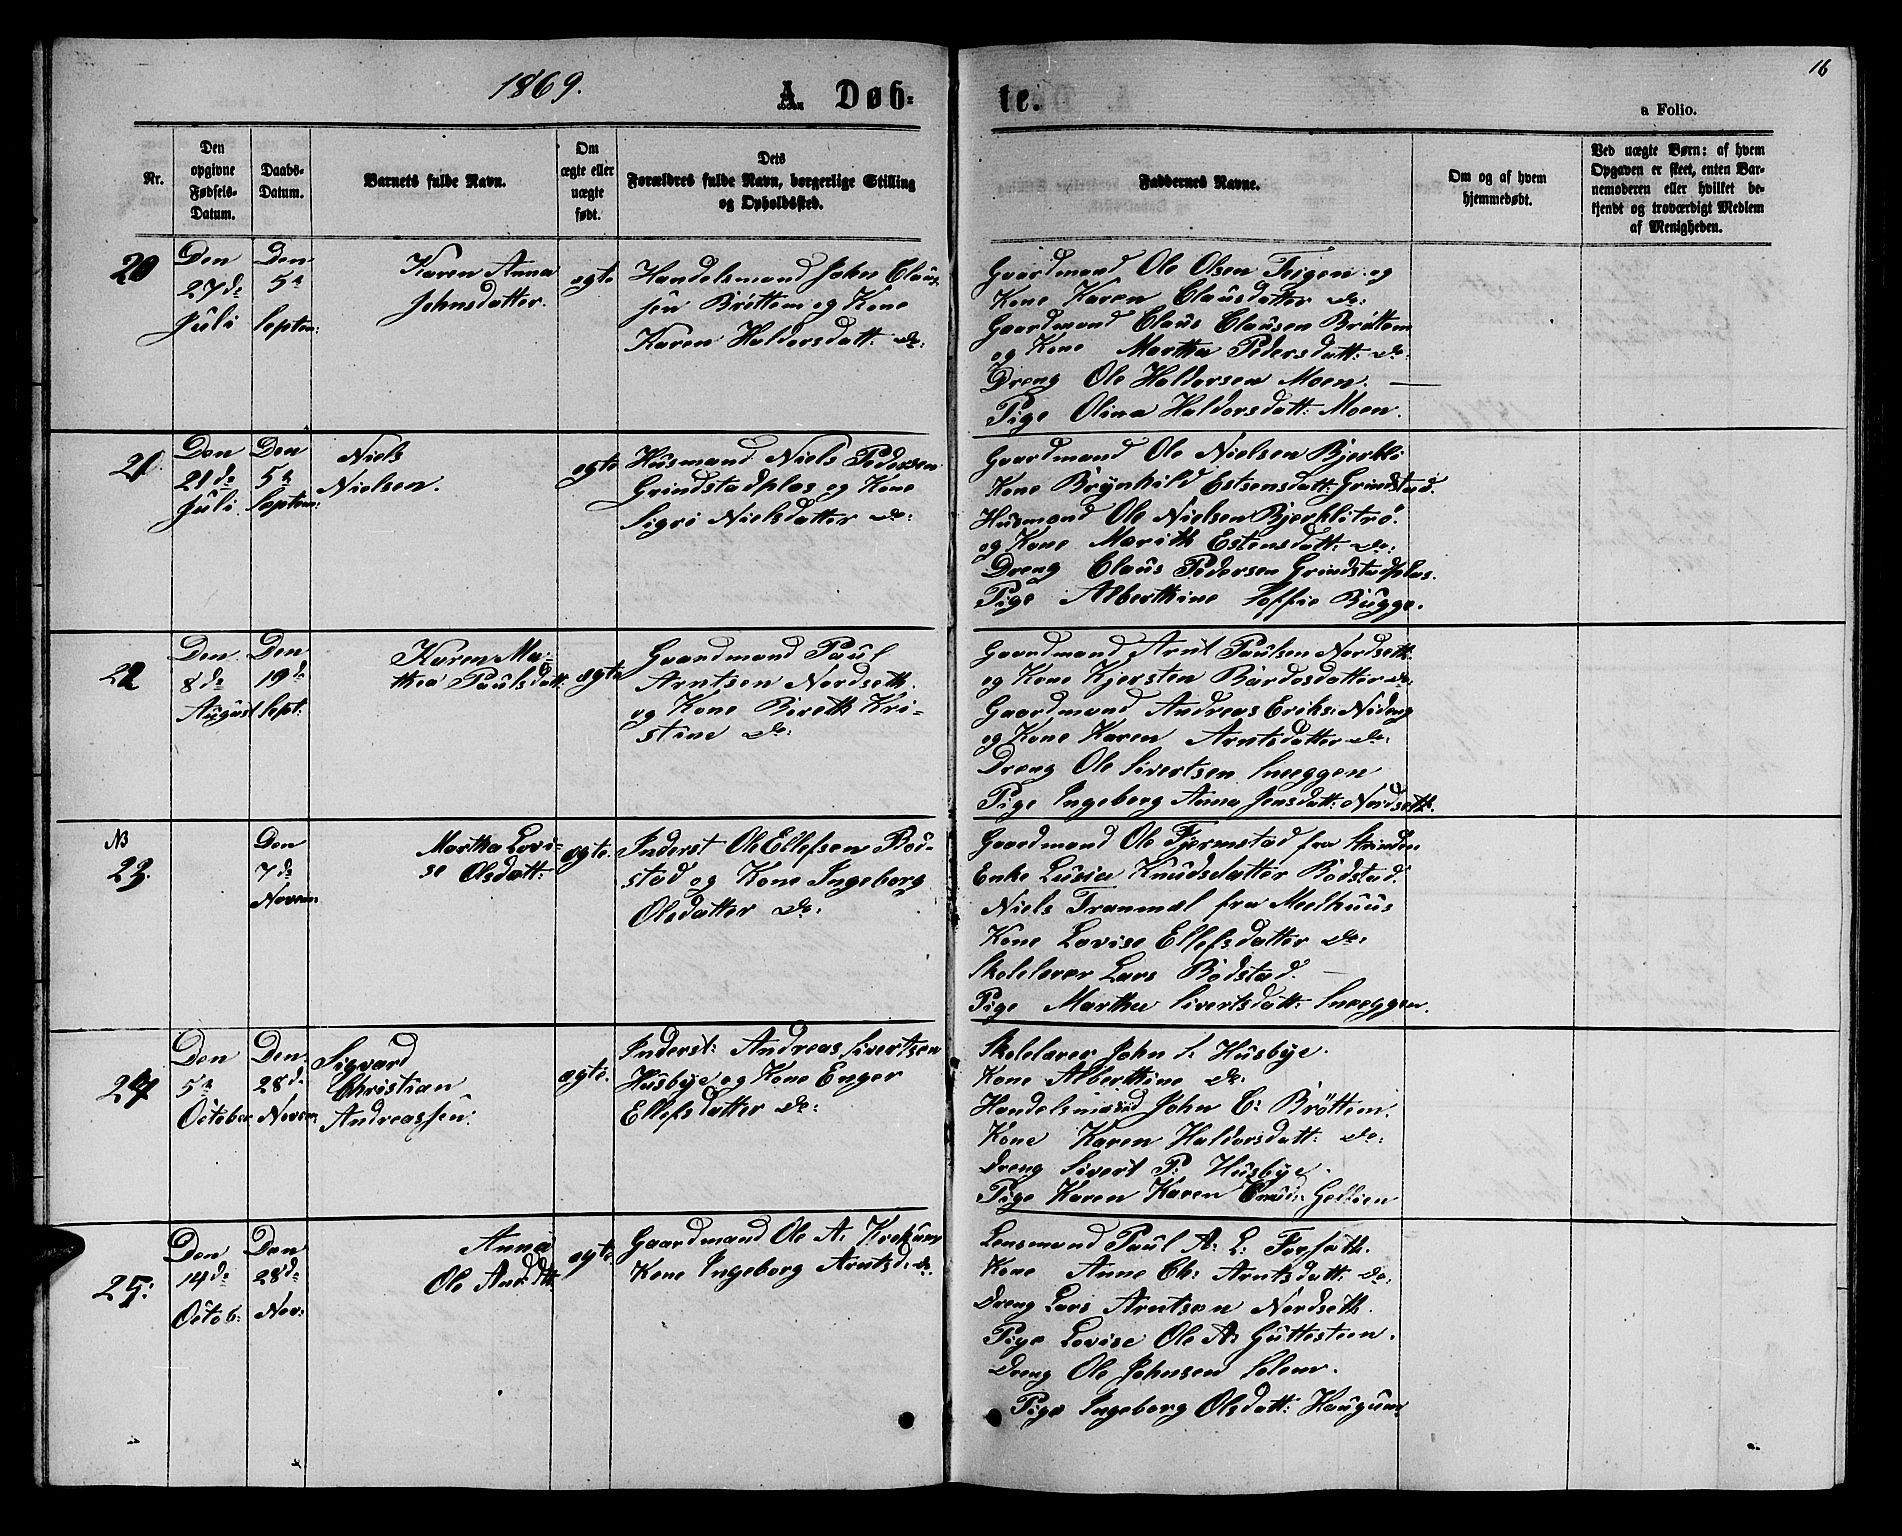 1869.
A. Døb-
te.
16
a Folio.
Nr.
Den
opgivne
Fødsels-
Datum.
Daabs-
Datum.
Barnets fulde Navn.
Om
ægte eller
uægte
født.
Dets
Forældres fulde Navn, borgerlige Stilling
og Opholdssted.
Faddernes Navne.
Om og af hvem
hjemmedøbt.
Ved uægte Børn: af hvem
Opgaven er skeet, enten Bar-
nemoderen eller hvilket be-
kjendt og troværdigt Medlem
af Menigheden.
20
Den
27de
Juli
Den
5te
Septem:
Karen Anna
Johnsdatter.
egte
Handelsmand John Claus-
sen Brøttem og Kone
Karen Haldorsdatt: do:
Gaardmand Ole Olsen Teigen og
Kone Karen Clausdatter do:
Gaardmand Claus Clausen Brøttem
og Kone Martha Pedersdatt: do:
Dreng Ole Haldorsen Moen.
Pige Olina Haldorsdatt: Moen.
21
Den
21de
Juli
Den
5te
Septem:
Niels
Nielsen.
egte
Husmand Niels Pedersen
Grindstadplas og Kone
Sigri Nielsdatter do:
Gaardmand Ole Nielsen Bjerkli
Kone Brynhild Estensdatt: Grindstad.
Husmand Ole Nielsen Bjerklitrø.
og Kone Marith Estensdatt: do:
Dreng Claus Pedersen Grindstadplas.
Pige Alberthine Soffie Bugge.
22
Den
8de
August
Den
19de
Sept:
Karen Ma-
thea Paulsdatt:
egte
Gaardmand Paul
Arntsen Nordseth.
og Kone Bereth Kri-
stine do:
Gaardmand Arnt Paulsen Nordseth
og Kone Kjersten Bardosdatter do:
Gaardmand Andreas Eriks: Nideng
og Kone Karen Arntsdatter do:
Dreng Ole Sivertsen Sneeggen
Pige Ingeborg Anna Jensdatt: Nordseth.
NB
23.
Den
7de
Novem:
Martha Lovi-
se Olsdatt:
egte.
Inderst Ole Ellefsen Bod-
stad og Kone Ingeborg
Olsdatter do:
Gaardmand Ole Fjermstad fra Strinden
Enke Lusia Knudsdatter Bodstad.
Niels Tranmæl fra Meelhuus
Kone Lovise Ellefsdatter do:
Skolelærer Lars Bodstad.
Pige Martha Sivertsdatt: Sneeggen.
24
Den
5te
October
Den
28de
Novem:
Sigvard
Christian
Andreassen.
egte.
Inderst: Andreas Sivertsen
Husbye og Kone Enger
Ellefsdatter do:
Skolelærer John S. Husbye.
Kone Alberthine do:
Handelsmand John C: Brøttem.
Kone Karen Haldorsdatt: do:
Dreng Sivert P: Husbye.
Pige Karen Karen
25:
Den
14de
Octob:
Den
28de
Nov:
Anna
Ole
egte
Gaardmand Ole A:
Kone Ingeborg Arntsd: do:
Lensmand Paul A: L: Forseth.
Kone Anne Ch: Arntsdatt: do:
Dreng Lars Arntsen Nordseth.
Pige Lovise Ole A: Guttesteen.
Dreng Ole Johnsen Solem.
Pige Ingeborg Olsdatt: Haugum